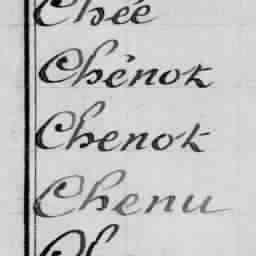 Chée
Chénok
Chenok
Chenu